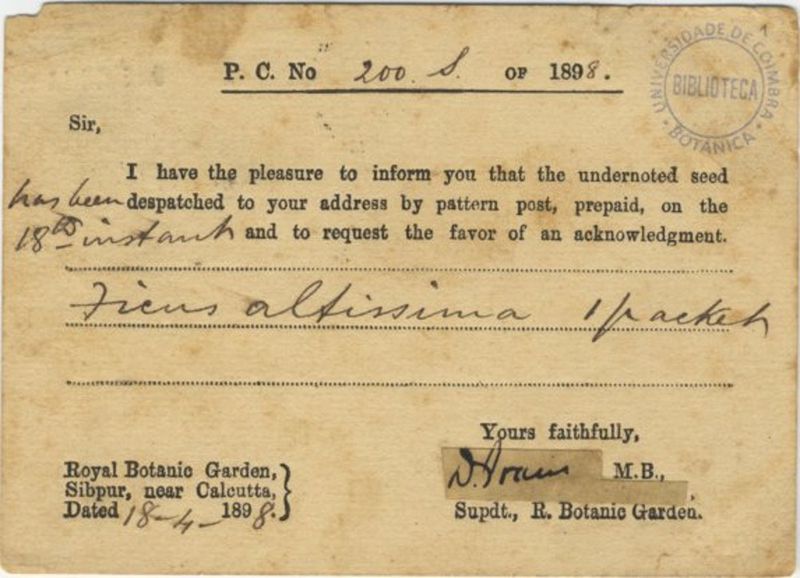 P. C. No 200. S. OF 1898.
UNIVERSIDADE DE COIMBRA
BIBLIOTECA
BOTANICA
Sir,
I have the pleasure to inform you that the undernoted seed
has been despatched to your address by pattern post, prepaid, on the
18th instant and to request the favor of an acknowledgment.
Ficus altissima 1 packet
Yours faithfully,
D. Prain M.B.,
Supdt., R. Botanic Garden.
Royal Botanic Garden,
Sibpur, near Calcutta,
Dated 18-4-1898.